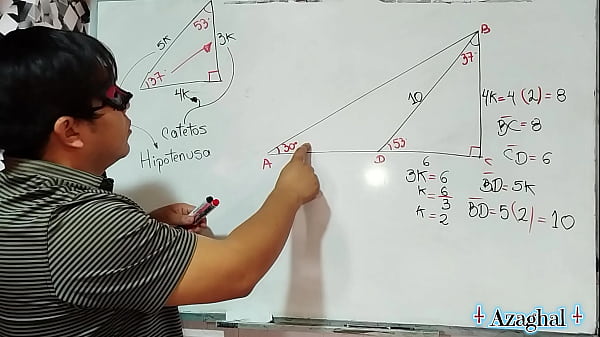 53°
5K
3K
37°
4K
Catetos
Hipotenusa
B
37
10
4K=4(2)=8
BC=8
30°
53°
A
D
6
C
CD=6
3K=6
K=6/3
K=2
BD=5K
BD=5(2)=10
Azaghal